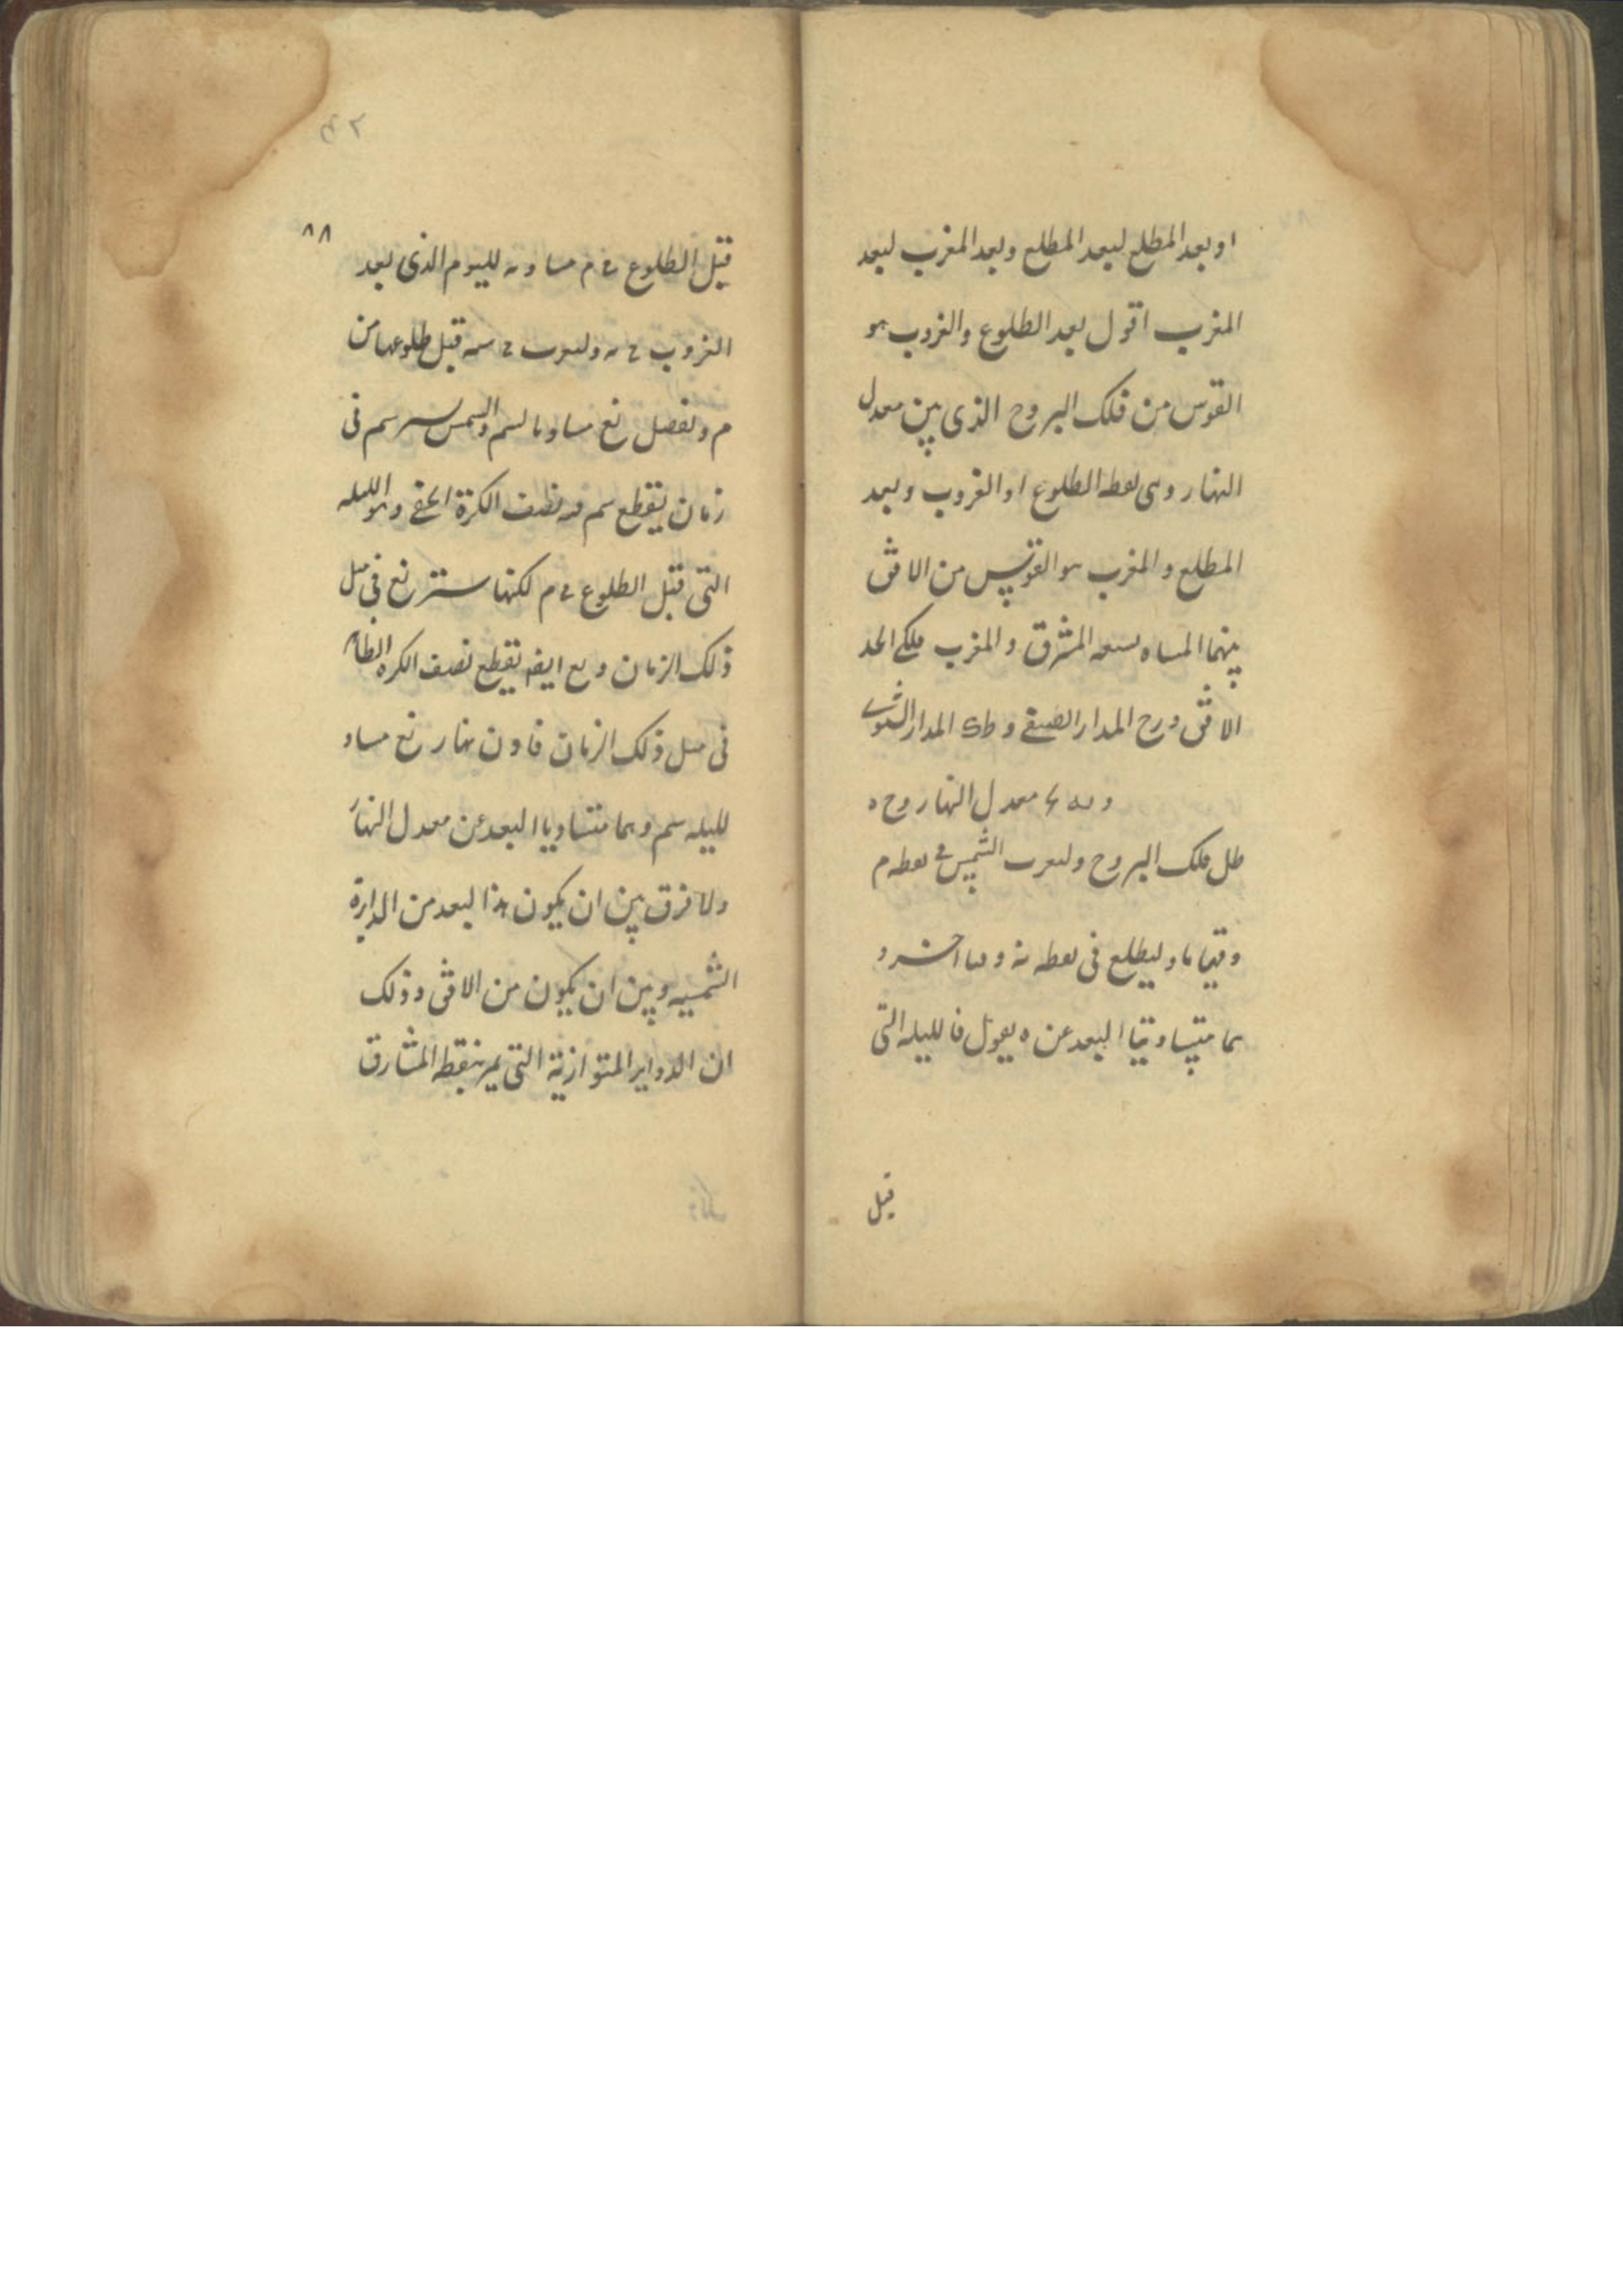 او بعد المطلع لبعد المطلع وبعد المغرب لبعد
المغرب اقول بعد الطلوع والغروب هو
القوس من فلك البروج الذى بين معدل
النهار وهى نقطه الطلوع او الغروب وبعد
المطلع والمغرب هو القوس من الافق
بينهما المسماه بسعه المشرق والمغرب فليكن
الافق و رح المدار الصيفى و طك المدار الشتوى
معدل النهار و ح ه
طل فلك البروج ولتغرب الشمس فى نقطه م
وقتا ما ولتطلع فى نقطه
هما متساويتا البعد عن ه يقول فالليله التى
قبل
٨٨
قبل الطلوع م مساويه لليوم الذى بعد
الغروب قبل طلوعها من
م ونفصل نع مساويا لسم والشمس سم فى
زمان يقطع سم فيه نصف الكرة الخفى وهو الليله
التى قبل الطلوع م لكنها ستر نع فى مثل
ذلك الزمان و نع ايضه يقطع نصف الكره الظاهر
فى مثل ذلك الزمان فاذن نهار نع مساو
لليله سم وهما متساويا البعد عن معدل النهار
ولا فرق بين ان يكون هذا البعد من الدايرة
الشمسيه وبين ان يكون من الافق وذلك
ان الدواير المتوازية التى يمر بنقطه المشارق